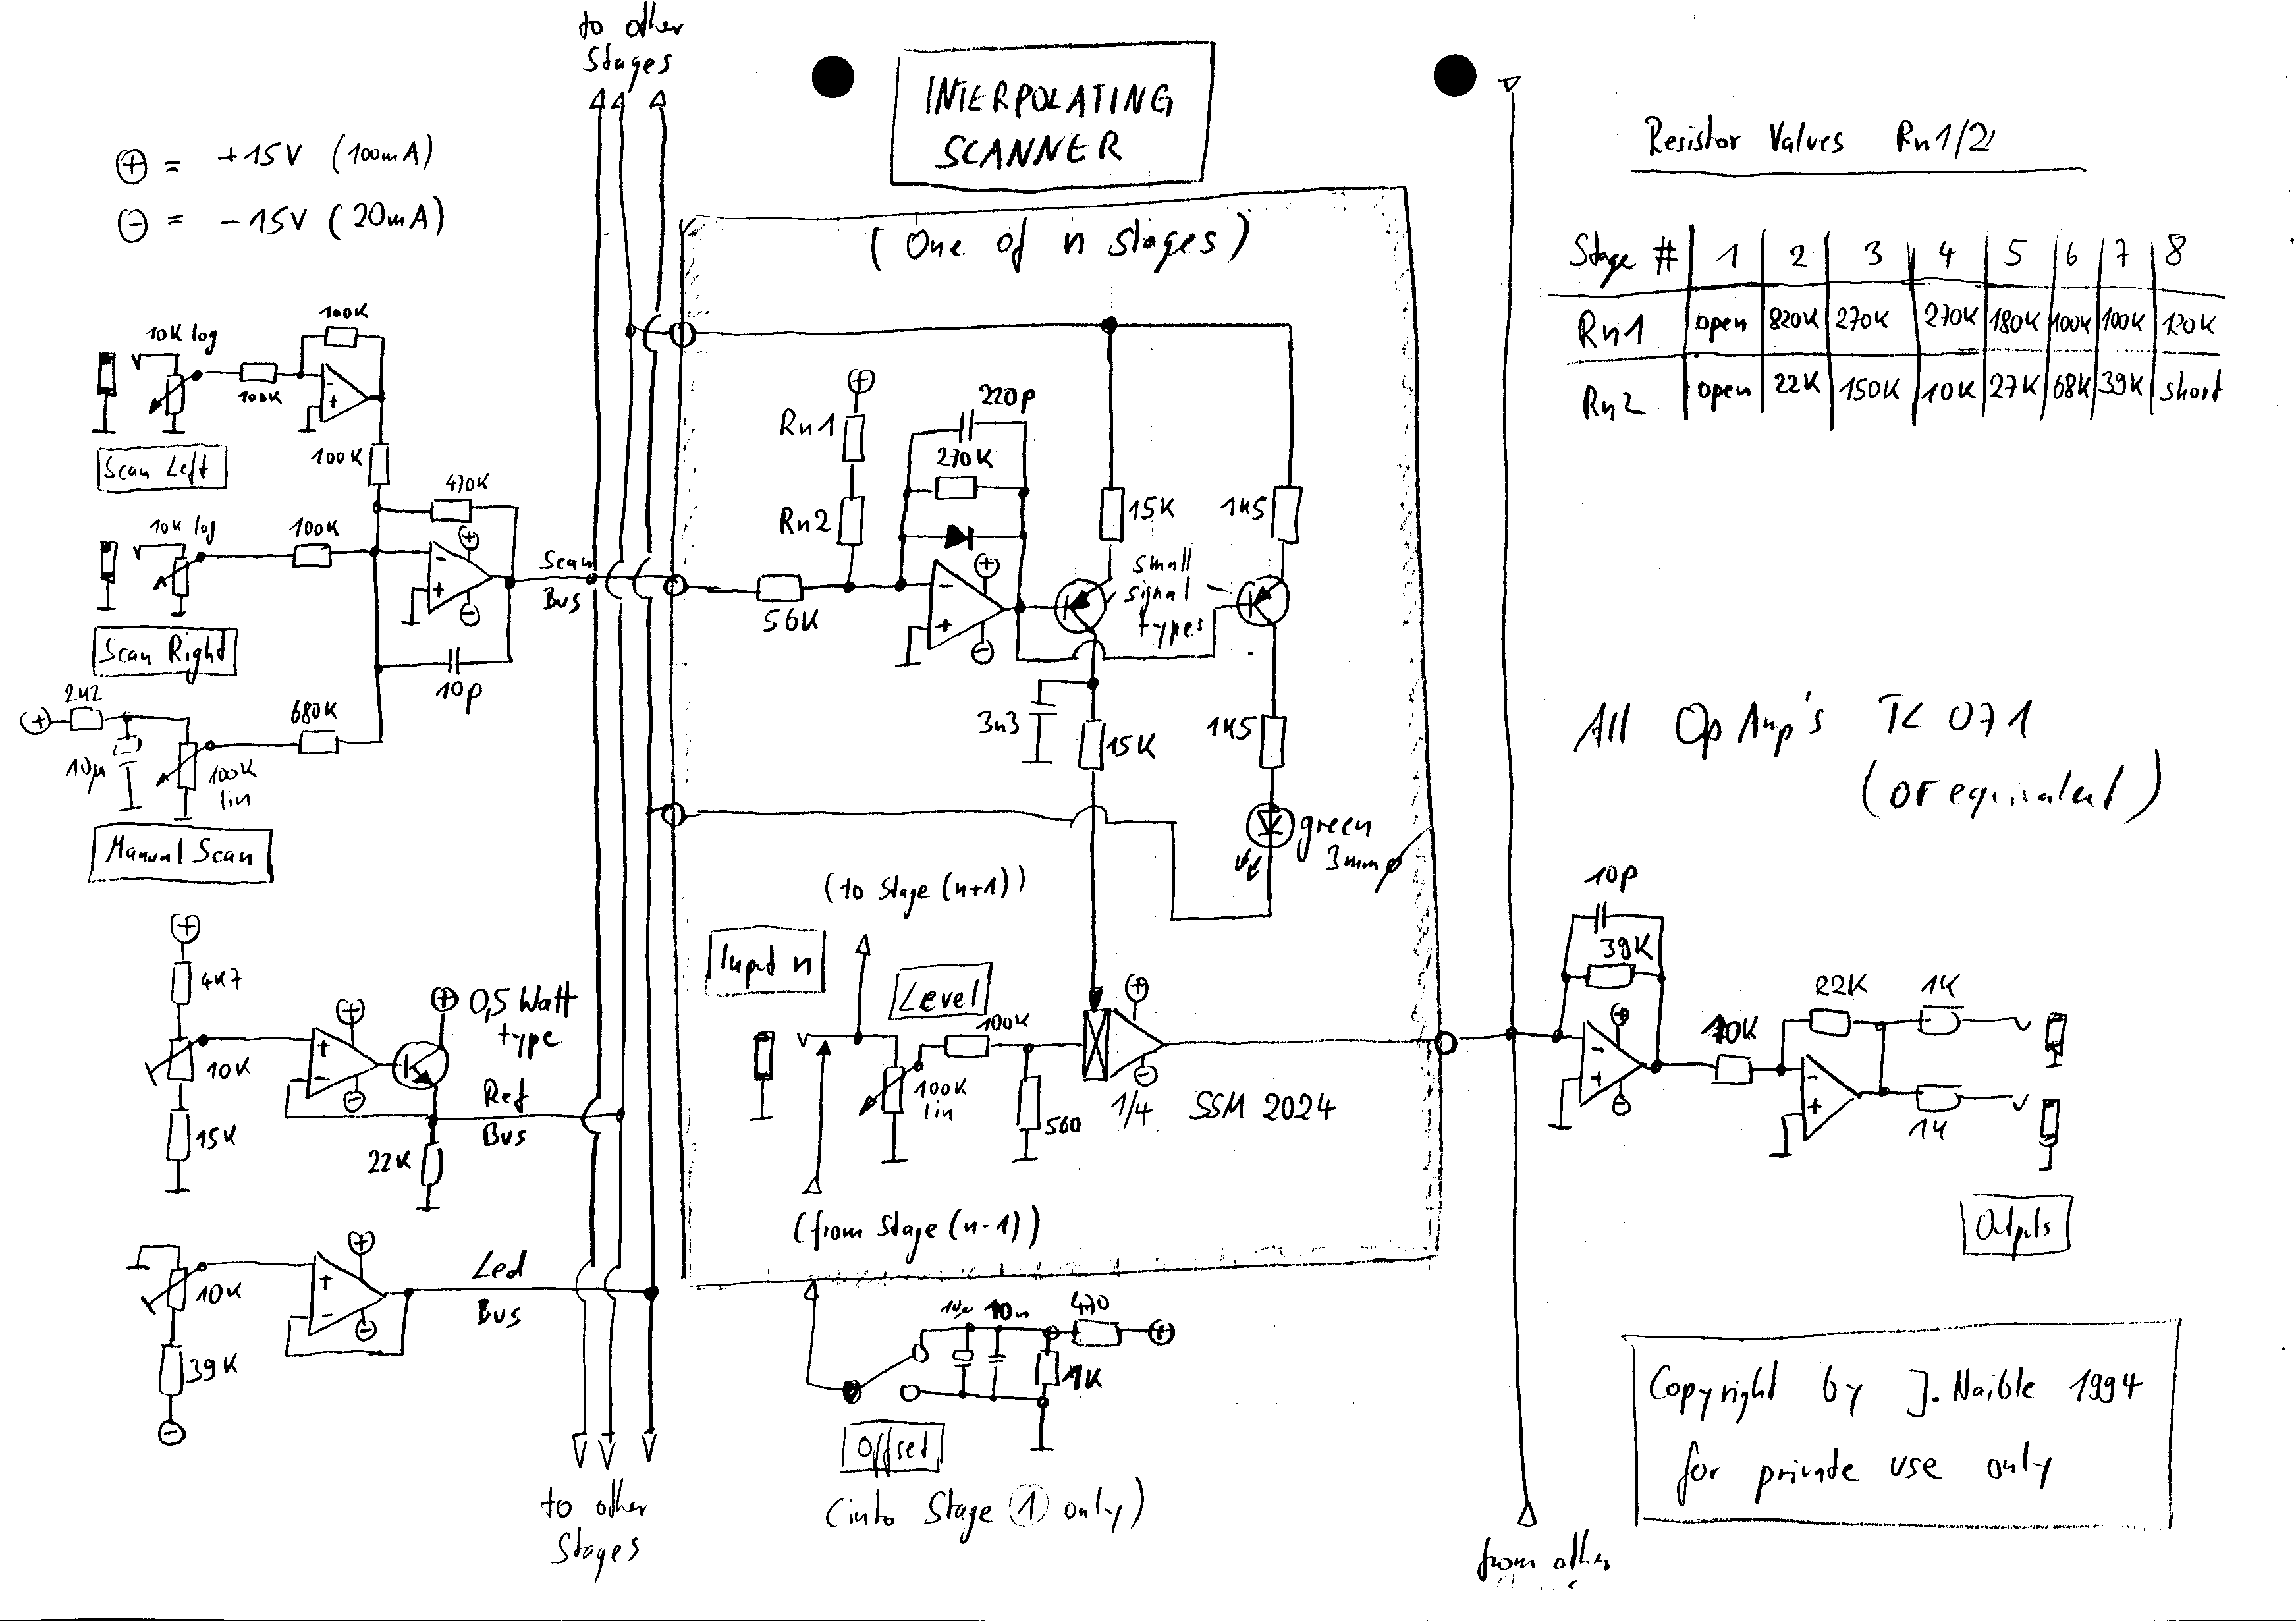 to other
Stages
INTERPOLATING
SCANNER
⊕ = +15V (100mA)
⊖ = -15V (20mA)
Resistor Values Rn1/2
Stage # 1 2 3 4 5 6 7 8
Rn1 open 820K 270K 270K 180K 100K 100K 120K
Rn2 open 22K 150K 10K 27K 68K 39K short
(One of n stages)
10K log
100K
100K
100K
Scan Left
10K log
100K
470K
Scan
Bus
Scan Right
10p
2K2
10µ
680K
100K
lin
Manual Scan
Rn1
Rn2
220p
270K
56K
15K
1K5
small
signal
types
3n3
15K
1K5
green
3mm ø
All Op Amp's TL 071
(or equivalent)
4K7
10K
15K
0,5 Watt
type
Ref
Bus
22K
10K
39K
Led
Bus
(to Stage (n+1))
Input n
Level
100K
100K
lin
560
1/4 SSM 2024
(from Stage (n-1))
10p
39K
10K
22K
1K
1K
Outputs
10µ 10n 470
1K
Offset
(into Stage 1 only)
to other
Stages
from other
Copyright by J. Haible 1994
for private use only